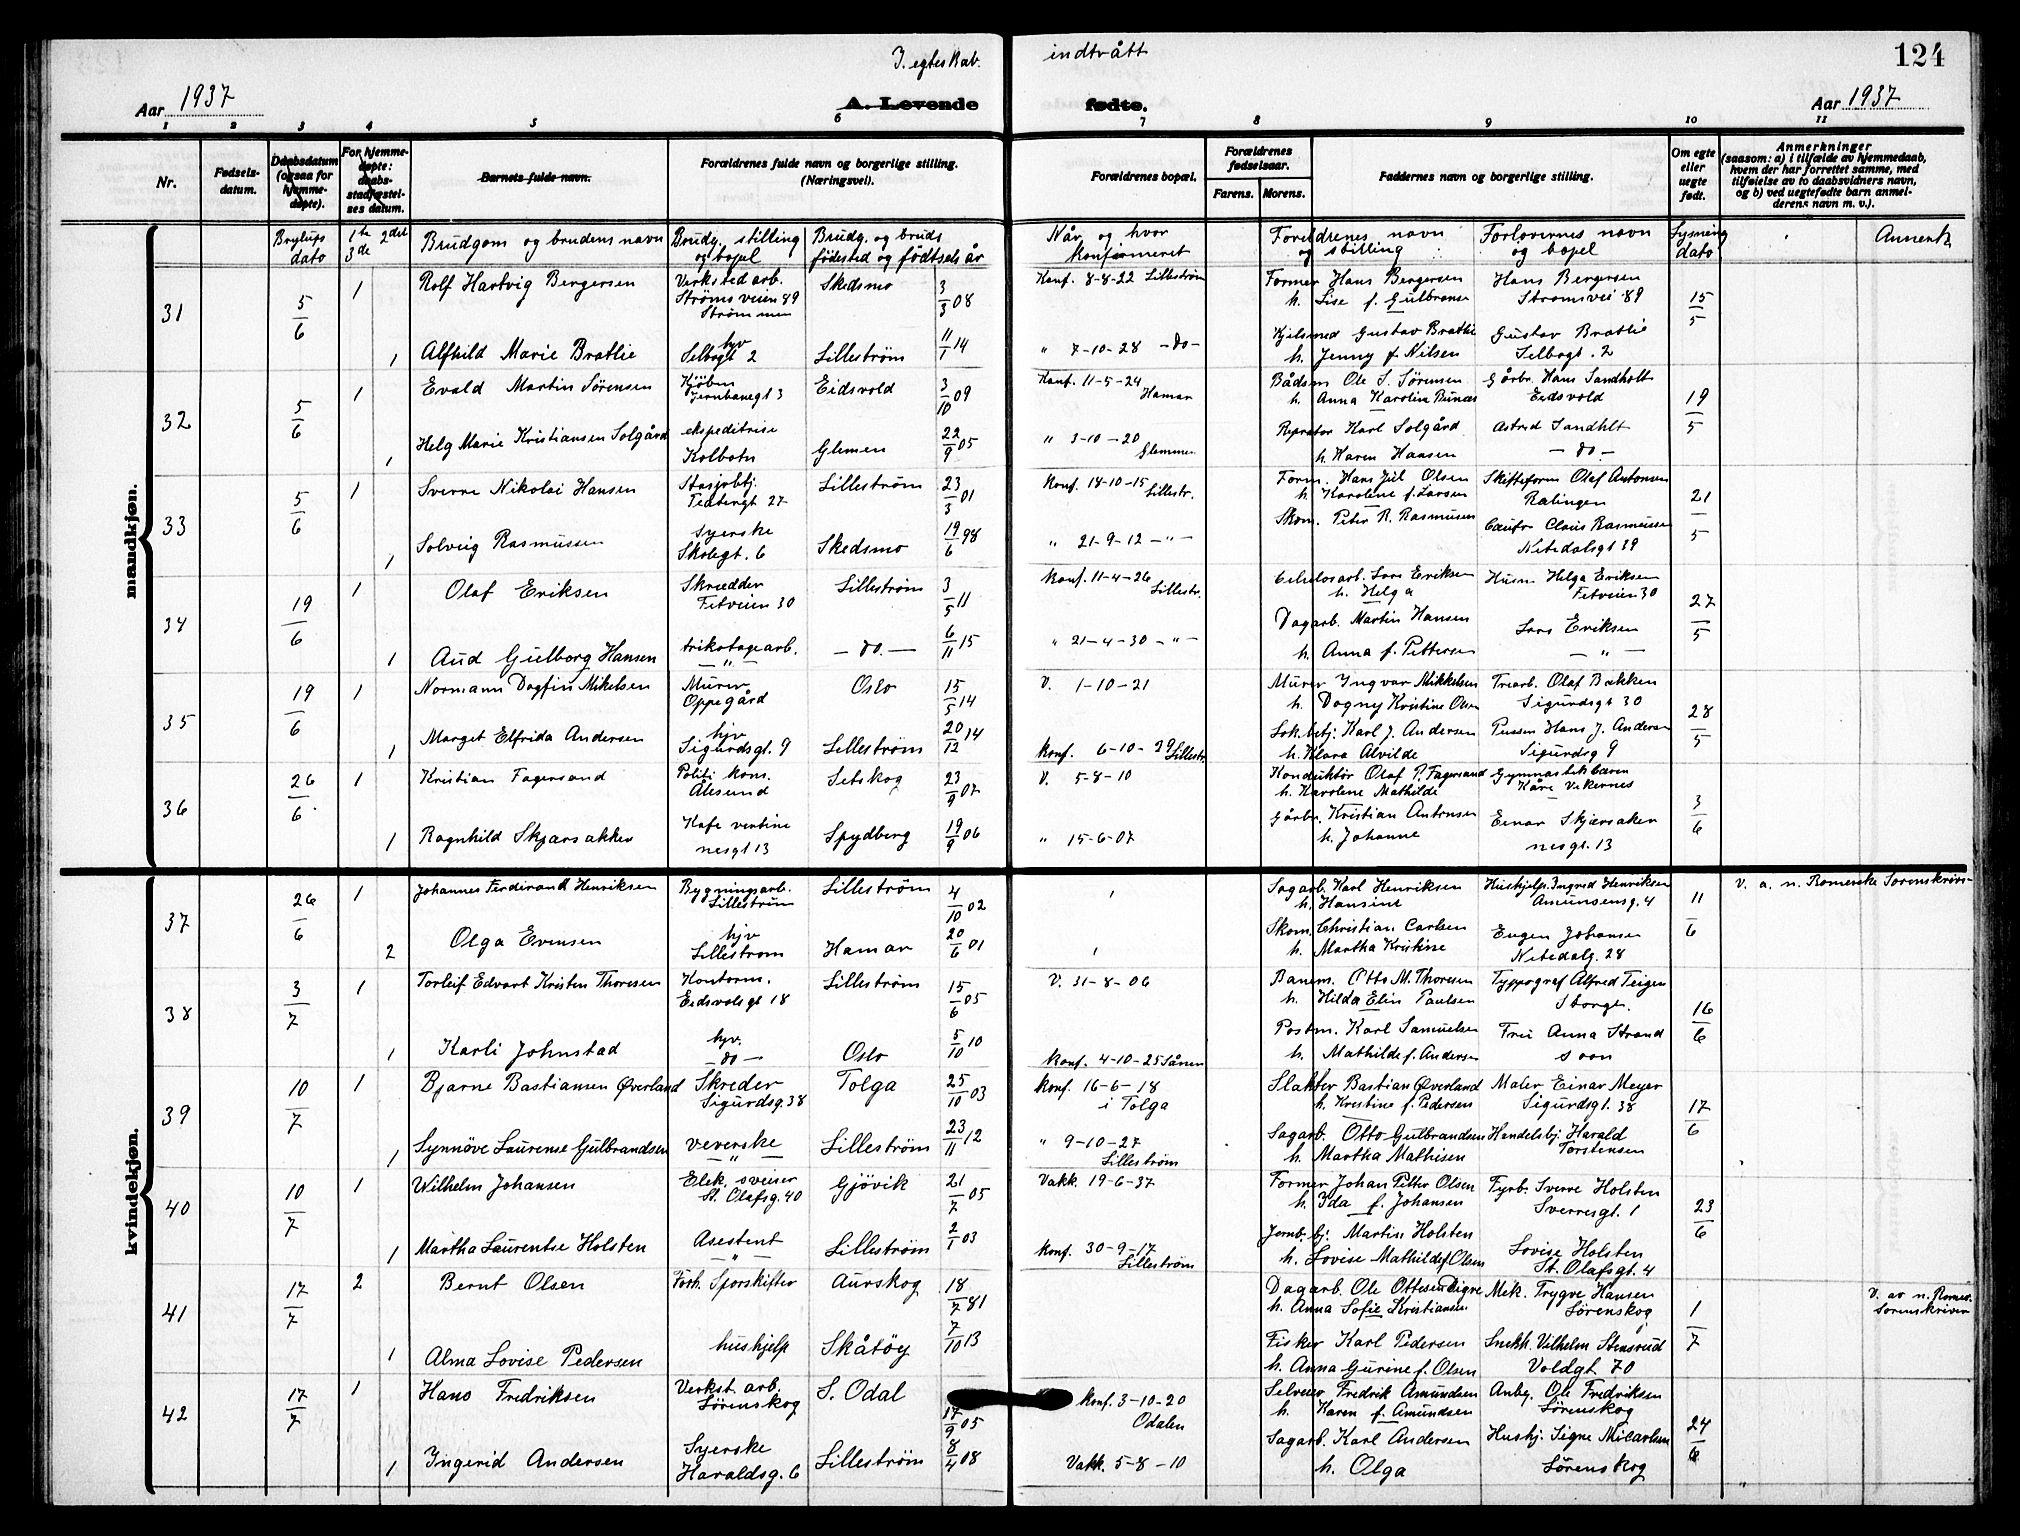 I. egteskab. indtrått 124
Aar 1937 A. Levende fødte. Aar 1937
1 2 3 4 5 6 7 8 9 10 11
Nr.
Fødsels-
datum.
Daabsdatum
(ogsaa for
hjemme-
døpte).
For hjemme-
døpte:
daabs-
stadfæstel-
ses datum.
Barnets fulde navn.
Forældrenes fulde navn og borgerlige stilling.
(Næringsvei).
Forældrenes bopæl.
Forældrenes
fødselsaar.
Farens. Morens.
Faddernes navn og borgerlige stilling.
Om egte
eller
uegte
født.
Anmerkninger
(saasom: a) i tilfælde av hjemmedaab,
hvem der har forrettet samme, med
tilføielse av to daabsvidners navn,
og b) ved uegtefødte barn anmel-
derens navn m. v.).
mandkjøn.
kvindekjøn.
Bryllups dato
1ste 2det 3de
Brudgom og brudens navn
Brudg. stilling og bopel
Brudg. og bruds fødested og fødtsels år
Når og hvor konfirmeret
Foreldrenes navn og stilling
Forlovernes navn og bopel
Lysning dato
Anmerk
31 5/6 1 Rolf Hartvig Bergersen Verksted arb. Strømsveien 89 Strømmen Skedsmo 3/3 08 Konf. 8-8-22 Lillestrøm Former Hans Bergersen h. Lise f. Gulbranse Hans Bergersen Strømsvei 89 15/5
1 Alfhild Marie Bratlie hjv Selbogt 2 Lillestrøm 11/1 14 " 7-10-28 -do- Kjelsmed Gustav Bratlie h. Jenny f. Nilsen Gustav Bratlie Selbogt. 2
32 5/6 1 Evald Martin Sørensen Kjøbm Jernbanegt 3 Eidsvold 3/10 09 Konf. 11-5-24 Hamar Bådsm Ole S. Sørensen h. Anna Karolin Bunæs Gårbr. Hans Sandholt Eidsvold 19/5
1 Helg Marie Kristiansen Solgård ekspeditrise Kolbotn Glemen 22/9 05 " 3-10-20 Glemmen Reprator Karl Solgård h. Karen Hansen Astrid Sandhlt - do -
33 5/6 1 Sverre Nikolai Hansen Stasjobtj. Fedbergt 27 Lillestrøm 23/3 01 Konf. 18-10-15 Lillestr. Form. Hans Jul Olsen h. Karolene f. Larsen Skifteform Olaf Antonsen Rælingen 21/5
1 Solveig Rasmussen Syerske Skolegt. 6 Skedsmo 19/6 98 " 21-9-12 - " - Skom. Peter R. Rasmusen Claus Rasmussen Nitedalsgt 39
34 19/6 1 Olaf Eriksen Skrædder Fetveien 30 Lillestrøm 3/5 11 Konf. 11-4-26 Lillestr. Celulosarb. Lars Eriksen h. Helga Husm Helga Eriksen Fetveien 30 27/5
1 Aud Gulborg Hansen trikotagearb. - " - - do. - 6/11 15 " 21-4-30 - " - Dagarb. Martin Hansen h. Anna f. Pettersen Lars Eriksen - " -
35 19/6 1 Normann Dagfin Mikelsen Murer Oppegård Oslo 15/5 14 V. 1-10-21 Murer Ingvar Mikkelsen h. Dagny Kristine Olsen Trearb. Olaf Bækken Sigurdsgt 30 28/5
1 Marget Elfrida Andersen hjv Sigurdsgt. 9 Lillestrøm 20/12 14 Konf. 6-10-29 Lillestr Lok.betj. Karl J. Andersen h. Klara Alvilde Pusser Hans J. Andersen Sigurdsg 9
36 26/6 1 Kristian Fagersand Politi kons. Ålesund Setskog 23/9 07 V. 5-8-10 Konduktør Olaf P. Fagersand h. Karolene Mathilde Gymnastiklæren Kåre Vekernes 3/6
1 Ragnhild Skjærsakker Kafe vertine nesgt 13 Spydberg 19/9 06 " 15-6-07 Gårbr. Kristian Antonsen h. Johanne Einar Skjærsaken nesgt. 13
37 26/6 1 Johannes Ferdinand Henriksen Bygningsarb. Lillestrøm Lillestrøm 4/10 02 Sagarb. Karl Henriksen h. Hansine Hushjelp. Ingrid Henriksen Amundsensg. 4 11/6 V. a. n. Romerike Sorenskriv-
2 Olga Evensen hjv Lillestrøm Hamar 20/6 01 Skom. Christian Carlsen h. Martha Kristine Eugen Johansen Nitedalg. 28
38 3/7 1 Torleif Edvart Kristen Thoresen Kontorm. Eidsvolsgt 18 Lillestrøm 15/6 05 V. 31-8-06 Banem. Otto M. Thoresen h. Hilda Elin Paulsen Typpograf Alfred Teigen Sborge. 16/6
1 Karli Johnstad hjv. - do - Oslo 5/10 10 Konf. 4-10-25 Sånen Postm. Karl Samuelsen h. Mathilde f. Andersen Fru Anna Strand Soon
39 10/7 1 Bjarne Bastiansen Øverland Skreder Sigurdsg. 38 Tolga 25/10 03 Konf. 16-6-18 i Tolga Slakter Bastian Øverland h. Kristine f. Pedersen Maler Einar Meyer Sigurdsgt. 38 17/6
1 Synnøve Laurense Gulbrandsen veverske - " - Lillestrøm 23/11 12 " 9-10-27 Lillestrøm Sagarb. Otto Gulbrandsen h. Martha Mathisen Hendelsbj. Harald Torstensen
40 10/7 1 Wilhelm Johansen Elek. sveiser St. Olafsg. 40 Gjövik 21/7 05 Vakk. 19-6-37 Former Johan Petter Olsen h. Ida f. Johansen Fyrb. Sverre Holsten Sverresgt. 1 23/6
1 Martha Laurentse Holsten Asestent - " - Lillestrøm 2/1 03 Konf. 30-9-17 Lillestrøm Jernb. bj. Martin Holsten h. Lovise Mathilde f Olsen Lovise Holsten St. Olafsgt. 4
41 17/7 2 Bernt Olsen Forh. Sporskifter Aurskog 18/7 81 Dagarb. Ole Ottesen Digre h. Anna Sofie Kristiansen Mek. Trygve Hansen Lørenskog 1/7 V. av n. Romer. Sorenskriver
1 Alma Lovise Pedersen hushjelp Skåtøy 7/10 13 Fisker Karl Pedersen h. Anna Gurine f. Olsen Snekk. Vilhelm Stensrud Voldgt 70
42 17/7 1 Hans Fredriksen Verkst. arb. Lørenskog S. Odal 17/9 05 Konf. 3-10-20 Odalen Selveier Fredrik Amundsen h. Karen f. Amundsen Anbg. Ole Fredriksen Lørenskog 24/6
1 Ingerid Andersen Syerske Haraldsg. 6 Lillestrøm 8/4 08 Vakk. 5-8-10 Sagarb. Karl Andersen h. Olga Hushj. Signe Micarlsen Lørenskog